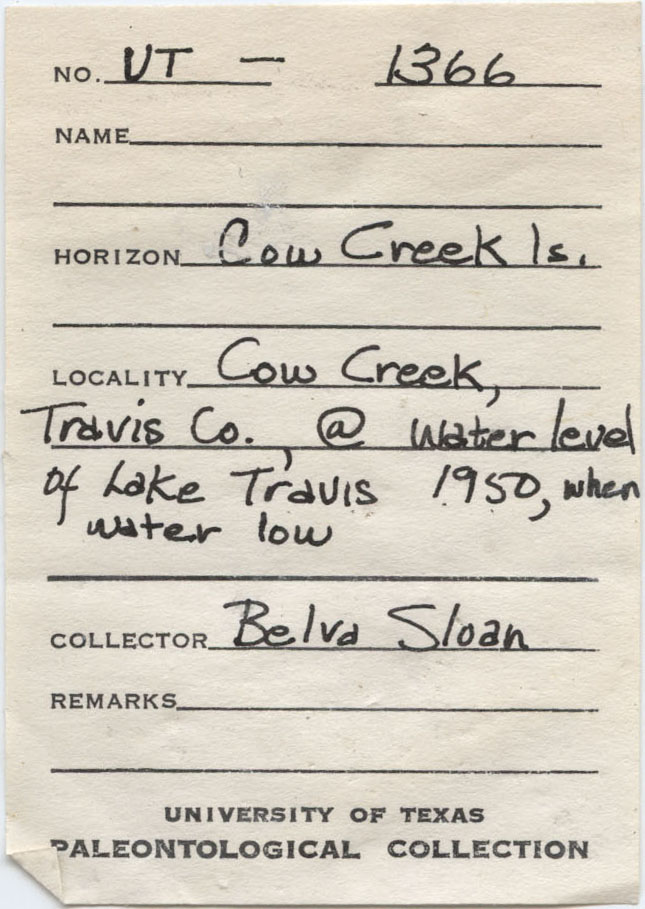 NO. UT - 1366
NAME
HORIZON Cow Creek ls.
LOCALITY Cow Creek,
Travis Co., @ water level
of Lake Travis 1950, when
water low
COLLECTOR Belva Sloan
REMARKS
UNIVERSITY OF TEXAS
PALEONTOLOGICAL COLLECTION